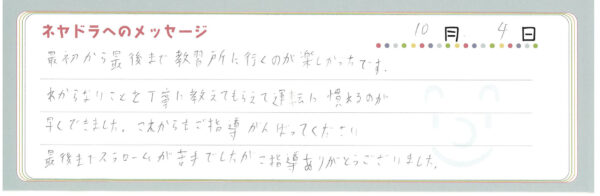 ネヤドラへのメッセージ 10月 4日
最初から最後まで教習所に行くのが楽しかったです。
わからないことを丁寧に教えてもらえて運転に慣れるのが
早くできました。これからもご指導がんばってください
最後までスラロームが苦手でしたがご指導ありがとうございました。